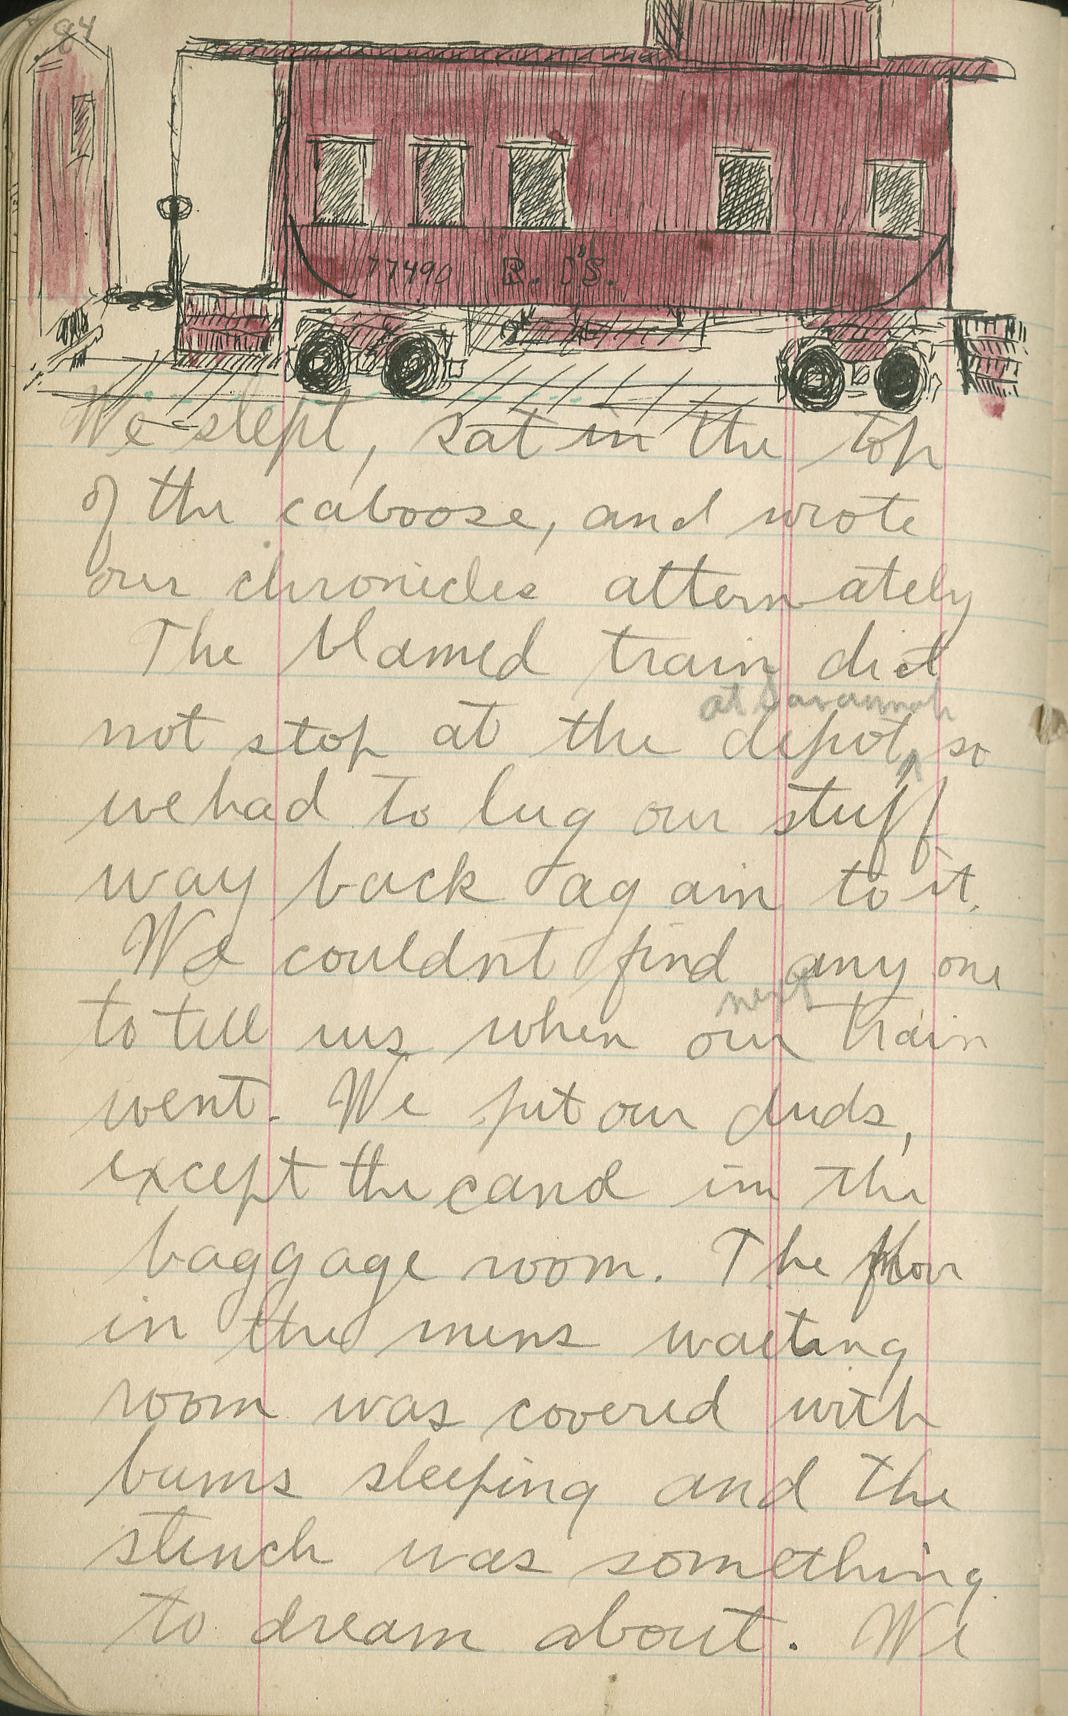 84
77490 R. I's.
We slept, sat in the top
of the caboose, and wrote
our chronicles alternately
The blamed train did
at Savannah
not stop at the depot, so
we had to lug our stuff
way back again to it.
We couldnt find any one
next
to tell us when our train
went. We put our duds,
except the cand in the
baggage room. The floor
in the mens waiting
room was covered with
bums sleeping and the
stench was something
to dream about. We